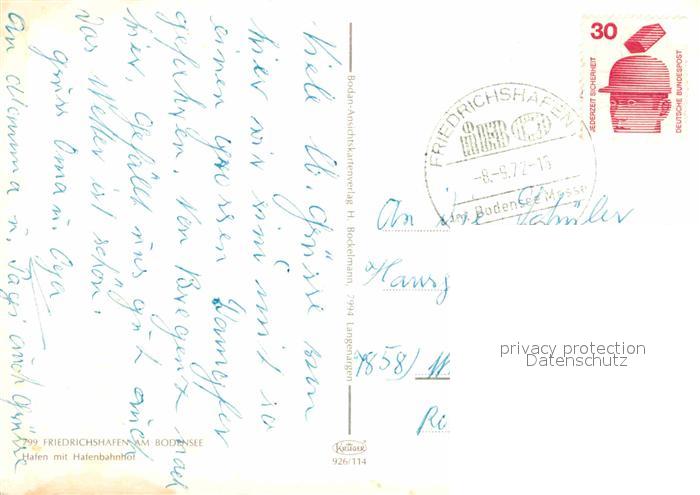 Viele lb. Grüsse von
hier wir sind mit so
einen grossen Dampfer
gefahren. Von Bregenz nach
hier, gefällt uns gut auch
das Wetter ist schön.
Gruss Oma u. Opa
an Mamma u. Papi auch Grüsse
Bodan-Ansichtskartenverlag H. Bockelmann, 7994 Langenargen
799 FRIEDRICHSHAFEN AM BODENSEE
Hafen mit Hafenbahnhof
KRÜGER
926/114
FRIEDRICHSHAFEN
IBO
-8.-5.72-15
Bodensee Messe
30
JEDERZEIT SICHERHEIT
DEUTSCHE BUNDESPOST
An die Schüler
Hansj
7858/ W
Ri
privacy protection
Datenschutz